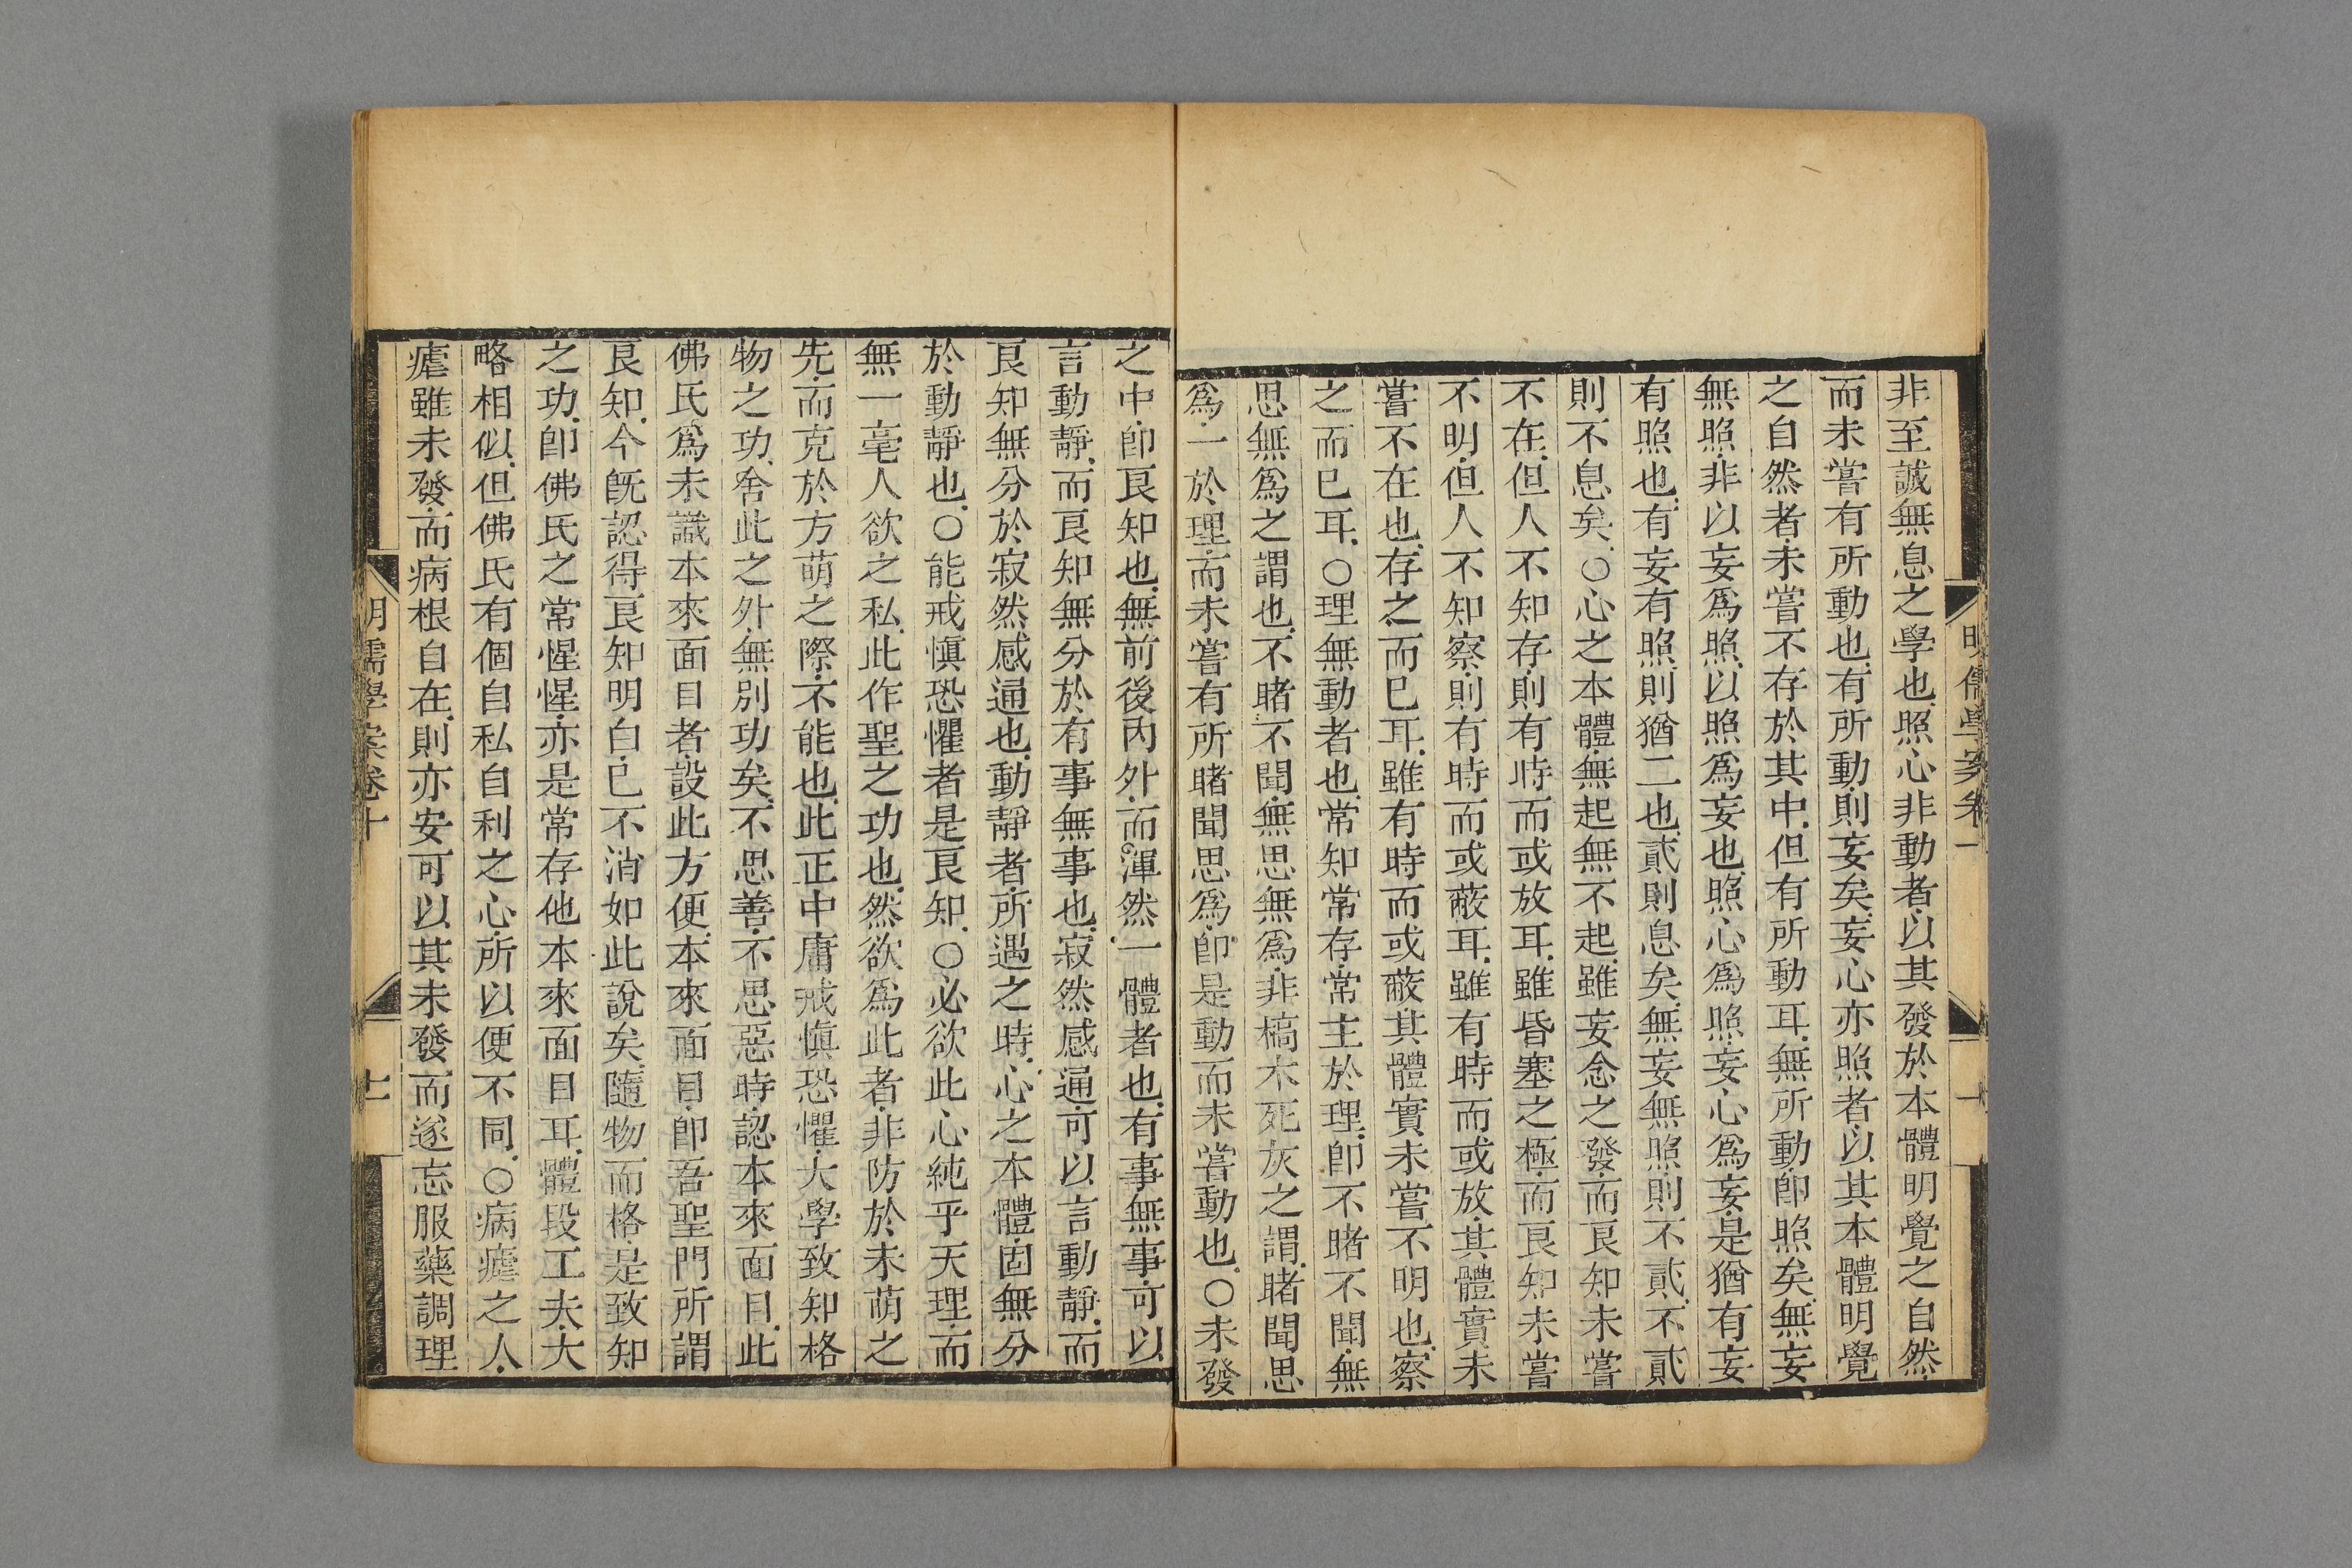 非至誠無息之學也照心非動者以其發於本體明覺之自然
而未嘗有所動也有所動則妄矣妄心亦照者以其本體明覺
之自然者未嘗不存於其中但有所動耳無所動卽照矣無妄
無照非以妄爲照以照爲妄也照心爲照妄心爲妄是猶有妄
有照也有妄有照則猶二也貳則息矣無妄無照則不貳不貳
則不息矣○心之本體無起無不起雖妄念之發而良知未嘗
不在但人不知存則有時而或放耳雖昏塞之極而良知未嘗
不明但人不知察則有時而或蔽耳雖有時而或放其體實未
嘗不在也存之而已耳雖有時而或蔽其體實未嘗不明也察
之而已耳○理無動者也常知常存常主於理卽不睹不聞無
思無爲之謂也不睹不聞無思無爲非槁木死灰之謂睹聞思
爲一於理而未嘗有所睹聞思爲卽是動而未嘗動也○未發
之中卽良知也無前後內外而渾然一體者也有事無事可以
言動靜而良知無分於有事無事也寂然感通可以言動靜而
良知無分於寂然感通也動靜者所遇之時心之本體固無分
於動靜也○能戒慎恐懼者是良知○必欲此心純乎天理而
無一毫人欲之私此作聖之功也然欲爲此者非防於未萌之
先而克於方萌之際不能也此正中庸戒慎恐懼大學致知格
物之功舍此之外無別功矣不思善不思惡時認本來面目此
佛氏爲未識本來面目者設此方便本來面目卽吾聖門所謂
良知今既認得良知明白已不消如此說矣隨物而格是致知
之功卽佛氏之常惺惺亦是常存他本來面目耳體段工夫大
略相似但佛氏有個自私自利之心所以便不同○病瘧之人
瘧雖未發而病根自在則亦安可以其未發而遂忘服藥調理
明儒學案卷十